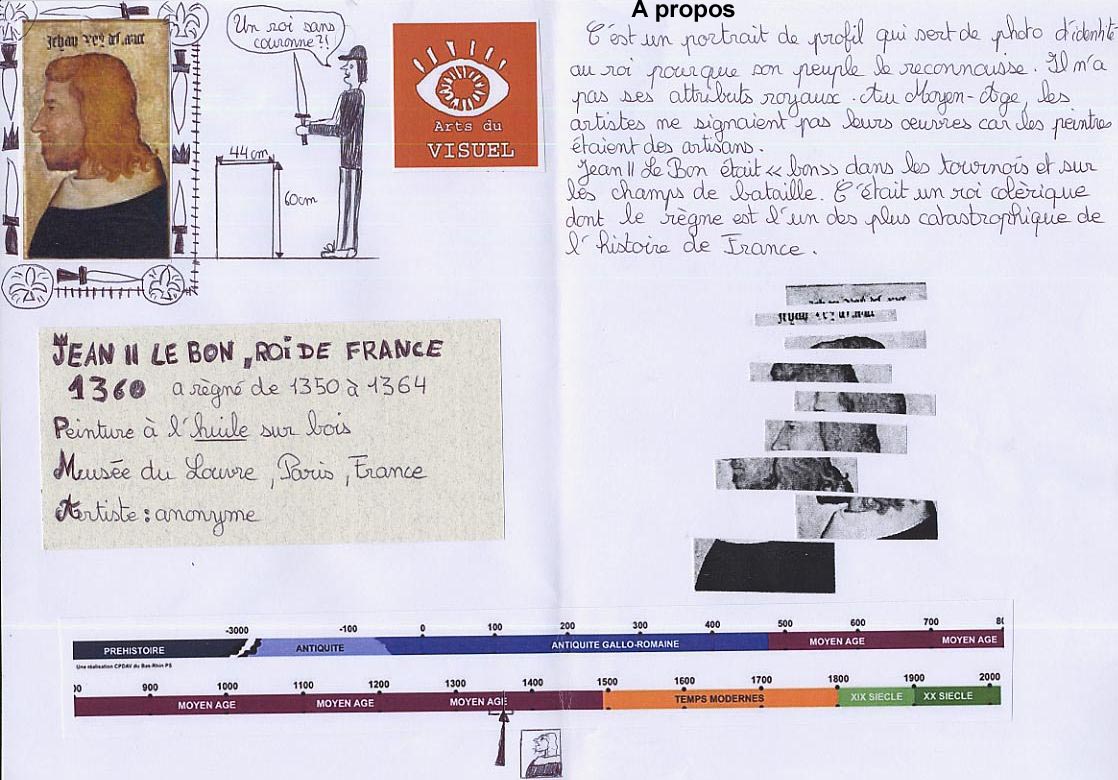 Jehan roy de france
Un roi sans
couronne?!
44 cm
60cm
Arts du
VISUEL
JEAN II LE BON, ROI DE FRANCE
1360 a règné de 1350 à 1364
Peinture à l'huile sur bois
Musée du Louvre, Paris, France
Artiste : anonyme
A propos
C'est un portrait de profil qui sert de photo d'identité
au roi pour que son peuple le reconnausse. Il n'a
pas ses attributs royaux. Au Moyen-Age, les
artistes ne signaient pas leurs oeuvres car les peintres
étaient des artisans.
Jean II Le Bon était «bon» dans les tournois et sur
les champs de bataille. C'était un roi colérique
dont le règne est l'un des plus catastrophique de
l'histoire de France.
-3000 -100 0 100 200 300 400 500 600 700
PREHISTOIRE ANTIQUITE ANTIQUITE GALLO-ROMAINE MOYEN AGE MOYEN AGE
Une réalisation CPDAV du Bas-Rhin PS
900 1000 1100 1200 1300 1400 1500 1600 1700 1800 1900 2000
MOYEN AGE MOYEN AGE MOYEN AGE TEMPS MODERNES XIX SIECLE XX SIECLE